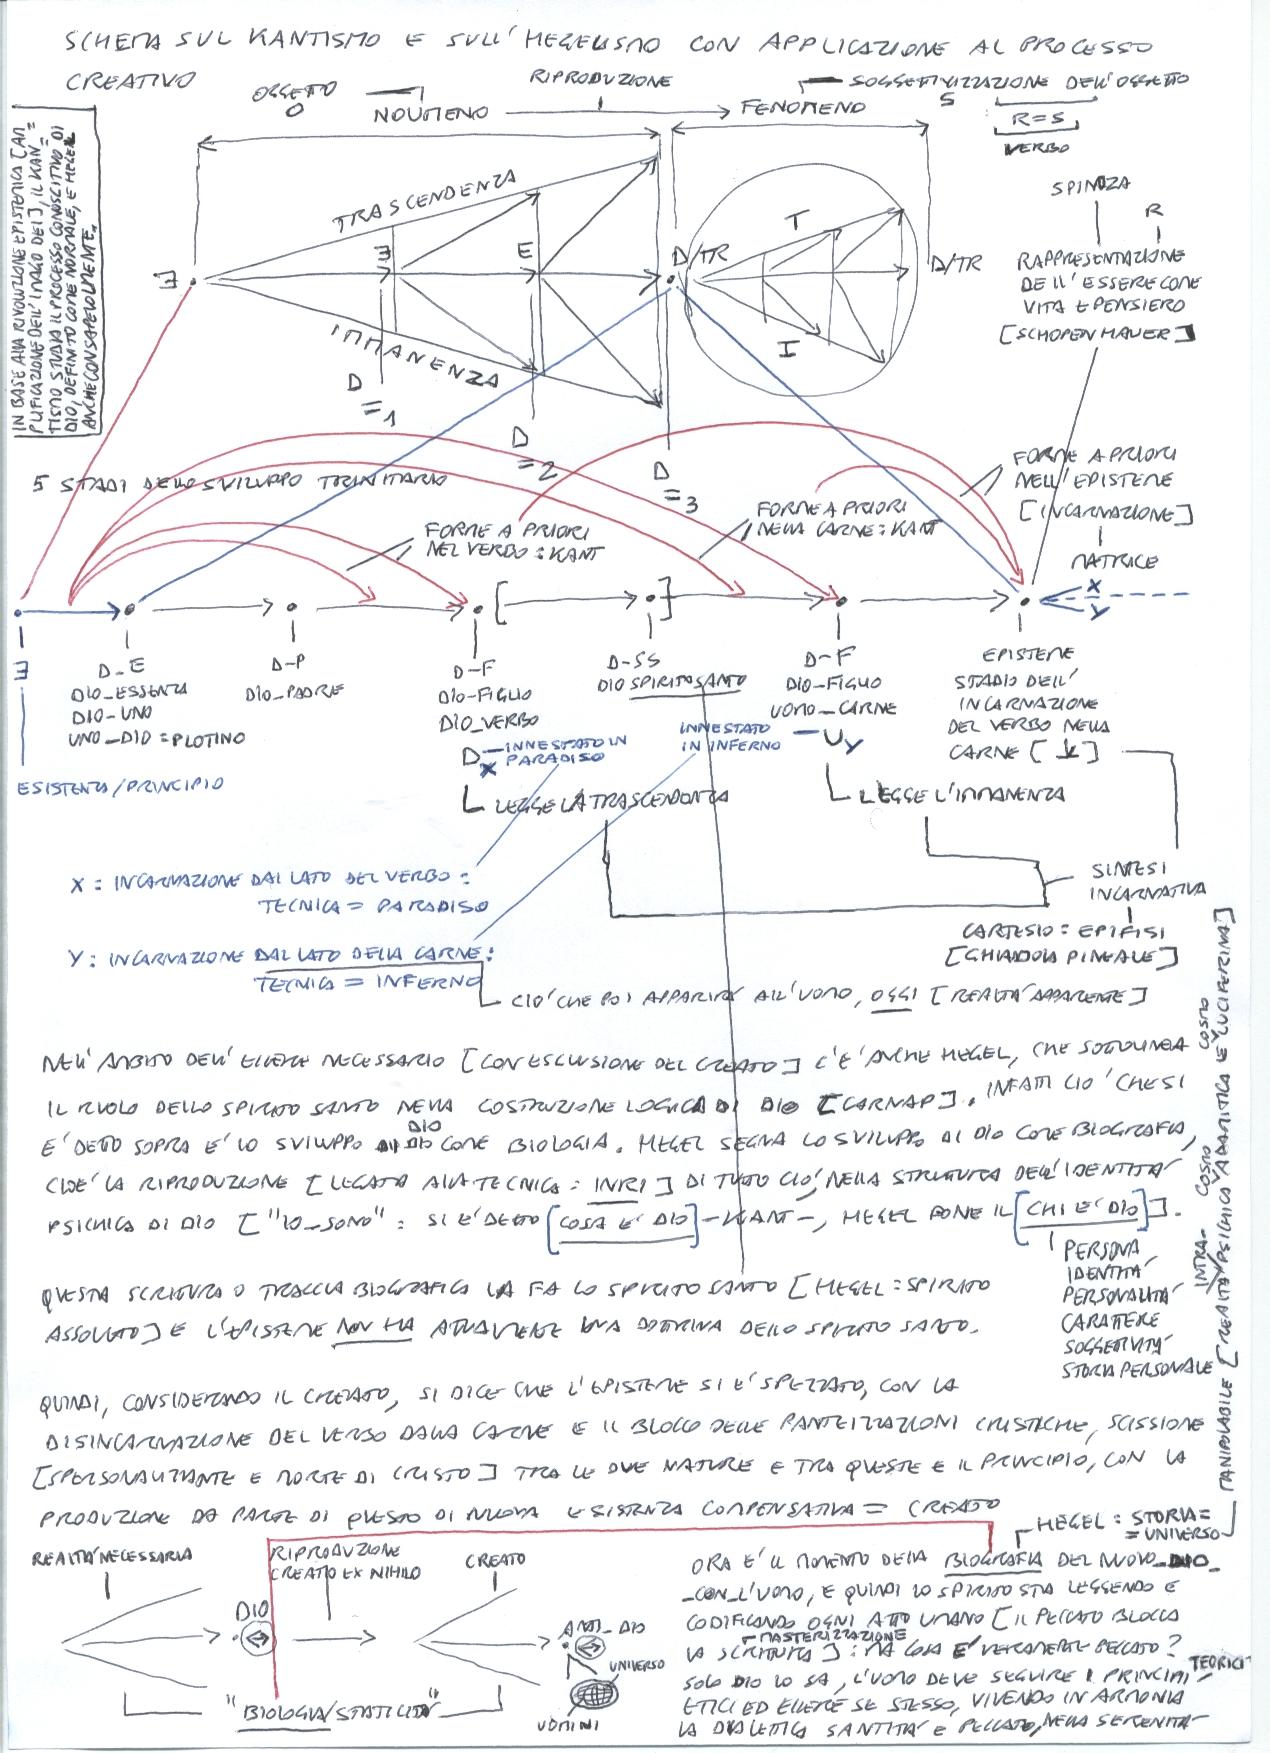 SCHEMA SUL KANTISMO E SULL'HEGELISMO CON APPLICAZIONE AL PROCESSO
CREATIVO
OGGETTO
O
NOUMENO
RIPRODUZIONE
FENOMENO
SOGGETTIVIZZAZIONE DELL'OGGETTO
S
R=S
VERBO
IN BASE ALLA RIVOLUZIONE EPISTEMICA [AM=
PLIFICAZIONE DELL'IMAGO DEI], IL KAN=
TISMO STUDIA IL PROCESSO CONOSCITIVO DI
DIO, DEFINITO COME NORMALE, E HEGEL
ANCHE CONSAPEVOLMENTE.
TRASCENDENZA
IMMANENZA
E
E
E
D=1
D=2
D=3
D/TR
T
I
D/TR
SPINOZA
R
RAPPRESENTAZIONE
DELL'ESSERE COME
VITA E PENSIERO
[SCHOPENHAUER]
5 STADI DELLO SVILUPPO TRINITARIO
FORME A PRIORI
NEL VERBO: KANT
FORME A PRIORI
NELLA CARNE: KANT
FORME A PRIORI
NELL'EPISTEME
[INCARNAZIONE]
MATRICE
X
Y
E
ESISTENZA/PRINCIPIO
D_E
DIO_ESSENZA
DIO_UNO
UNO_DIO = PLOTINO
D-P
DIO_PADRE
D-F
DIO-FIGLIO
DIO_VERBO
D X INNESTATO IN
PARADISO
LEGGE LA TRASCENDENZA
D-SS
DIO SPIRITO SANTO
D-F
DIO-FIGLIO
UOMO_CARNE
INNESTATO
IN INFERNO
U Y
LEGGE L'IMMANENZA
EPISTEME
STADIO DELL'
INCARNAZIONE
DEL VERBO NELLA
CARNE [ ]
SINTESI
INCARNATIVA
CARTESIO: EPIFISI
[GHIANDOLA PINEALE]
X: INCARNAZIONE DAL LATO DEL VERBO:
TECNICA = PARADISO
Y: INCARNAZIONE DAL LATO DELLA CARNE:
TECNICA = INFERNO
CIO' CHE POI APPARIRA' ALL'UOMO, OGGI [REALTA' APPARENTE]
NELL'AMBITO DELL'ESSERE NECESSARIO [CON ESCLUSIONE DEL CREATO] C'E' ANCHE HEGEL, CHE SOTTOLINEA
IL RUOLO DELLO SPIRITO SANTO NELLA COSTRUZIONE LOGICA DI DIO [CARNAP]. INFATTI CIO' CHE SI
E' DETTO SOPRA E' LO SVILUPPO DI DIO COME BIOLOGIA. HEGEL SEGNA LO SVILUPPO DI DIO COME BIOGRAFIA,
CIOE' LA RIPRODUZIONE [LEGATA ALLA TECNICA: INRI] DI TUTTO CIO', NELLA STRUTTURA DELL'IDENTITA'
PSICHICA DI DIO ["IO_SONO": SI E' DETTO [COSA E' DIO] -KANT-, HEGEL PONE IL [CHI E' DIO]].
PERSONA
IDENTITA'
PERSONALITA'
CARATTERE
SOGGETTIVITA'
STORIA PERSONALE
QUESTA SCRITTURA O TRACCIA BIOGRAFICA LA FA LO SPIRITO SANTO [HEGEL: SPIRITO
ASSOLUTO] E L'EPISTEME NON HA ATTUALMENTE UNA DOTTRINA DELLO SPIRITO SANTO.
QUINDI, CONSIDERANDO IL CREATO, SI DICE CHE L'EPISTEME SI E' SPEZZATO, CON LA
DISINCARNAZIONE DEL VERBO DALLA CARNE E IL BLOCCO DELLE CRISTICHE, SCISSIONE
[SPERSONALIZZANTE E MORTE DI CRISTO] TRA LE DUE NATURE E TRA QUESTE E IL PRINCIPIO, CON LA
PRODUZIONE DA PARTE DI QUESTO DI NUOVA ESISTENZA COMPENSATIVA = CREATO
HEGEL: STORIA=
=UNIVERSO
MANIPOLABILE [REALTA' PSICHICA ADAMITICA E LUCIFERINA]
INTRA-
COSMO
COSMO
REALTA' NECESSARIA
DIO
RIPRODUZIONE
CREATO EX NIHILO
CREATO
ANTI_DIO
UNIVERSO
UOMINI
"BIOLOGIA/STATICITA'"
ORA E' IL MOMENTO DELLA BIOGRAFIA DEL NUOVO_DIO_
_CON_L'UOMO, E QUINDI LO SPIRITO STA LEGGENDO E
CODIFICANDO OGNI ATTO UMANO [IL PECCATO BLOCCA
MASTERIZZAZIONE
LA SCRITTURA]: MA COSA E' VERAMENTE PECCATO?
SOLO DIO LO SA, L'UOMO DEVE SEGUIRE I PRINCIPI TEORICI
ETICI ED ESSERE SE STESSO, VIVENDO IN ARMONIA
LA DIALETTICA SANTITA' E PECCATO, NELLA SERENITA'